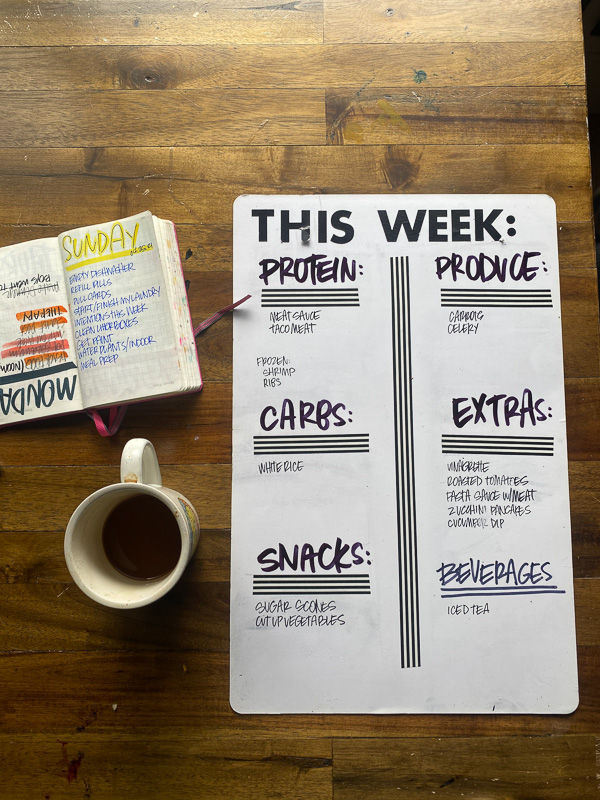 SUNDAY
EMPTY DISHWASHER
REFILL PILLS
PULL CARDS
START/FINISH MY LAUNDRY
INTENTIONS THIS WEEK
CLEAN LUNCHBOXES
GET PAINT
WATER PLANTS/INDOOR
MEAL PREP
MONDA
THERAPY
THIS WEEK:
PROTEIN:
MEAT SAUCE
TACO MEAT
FROZEN:
SHRIMP
RIBS
CARBS:
WHITE RICE
SNACKS:
SUGAR SCONES
CUT UP VEGETABLES
PRODUCE:
CARROTS
CELERY
EXTRAS:
VINAIGRETTE
ROASTED TOMATOES
PASTA SAUCE W/MEAT
ZUCCHINI PANCAKES
CUCUMBER DIP
BEVERAGES
ICED TEA